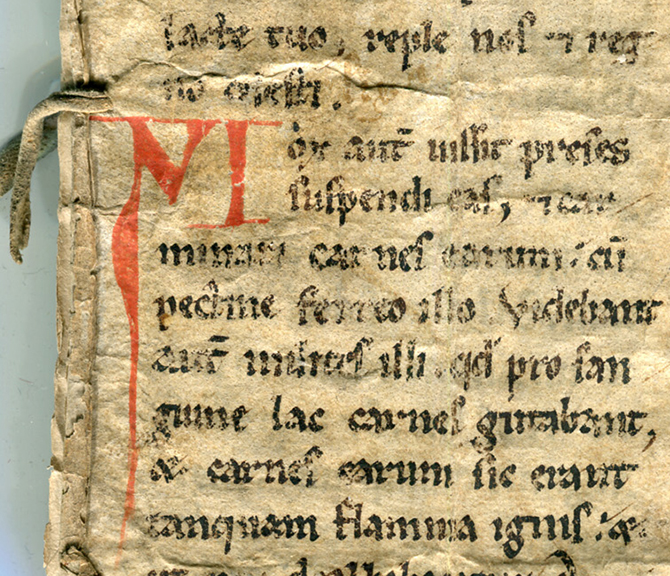 lacte tuo, reple nos ⁊ reg
no celesti.
Mox aut̄ iussit preses
suspendi eas, ⁊ car
minari carnes earum: cū
pectine ferreo illo. Videbant
aut̄ milites illi. qđ pro san
guine lac carnes guttabant,
& carnes earum sic erant
tanquam flamma ignis: &